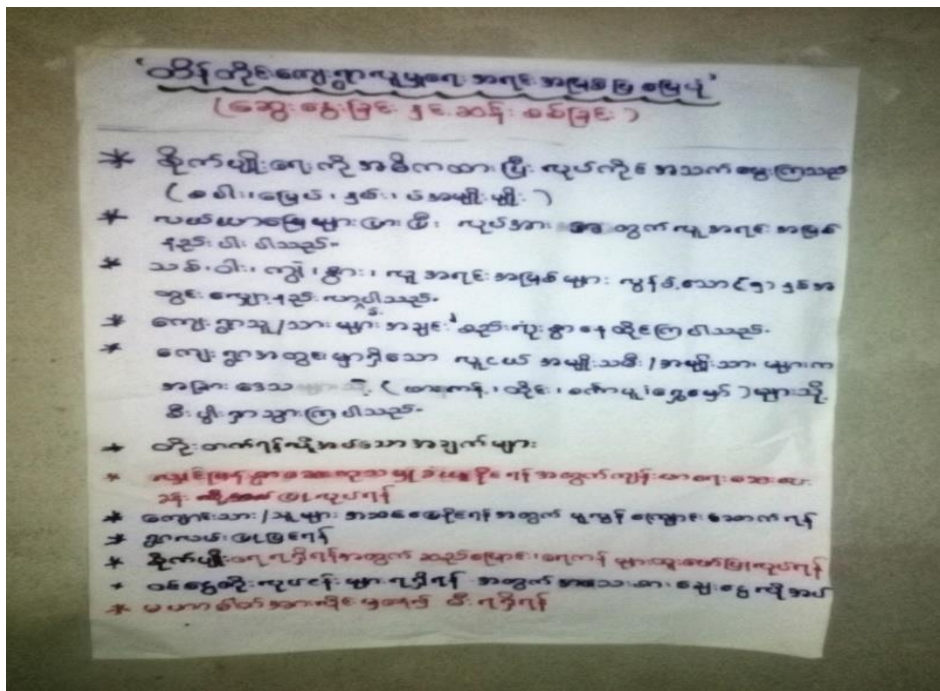 'တိန်တိုင်ကျေးရွာလူမှုရေး အရင်းအမြစ်ပြမြေပုံ'
(ဆွေးနွေးခြင်း နှင့် ဆန်းစစ်ခြင်း)
* စိုက်ပျိုးရေးကို အဓိကထားပြီး လုပ်ကိုင် အသက်မွေးကြသည်
(စပါး၊ မြေပဲ၊ နှမ်း၊ ပဲအမျိုးမျိုး)
* လယ်ယာမြေများများပြီး လုပ်အား အတွက် လူ့အရင်းအမြစ်
နည်းပါးပါသည်။
* သစ်၊ ဝါး၊ ကျွဲ၊ နွား၊ လူ့အရင်းအမြစ်များ လွန်ခဲ့သော (၅) နှစ်အ
တွင်း လျော့နည်းလာခဲ့ပါသည်။
* ကျေးရွာသူ/သားများ အချင်းချင်းစည်းလုံးစွာနေထိုင်ကြပါသည်။
* ကျေးရွာအတွင်းမှာရှိသော လူငယ် အမျိုးသမီး/အမျိုးသားများက
အခြားဒေသ (ထားကန့်၊ ထိုင်း၊ ရွှေမှော်) များသို့
စီးပွါးရှာသွားကြပါသည်။
* တိုးတက်ရန်လိုအပ်သောအချက်များ
* ရန်အတွက်ကျန်းမာရေးဆေးပေး
ခန်း ပြုလုပ်ရန်
* ကျောင်းသား/သူများ အဆင်ပြေနိုင်ရန်အတွက် မူလွန်ကျောင်းဆောက်ရန်
* ရွာလမ်းပြုပြင်ရန်
* စိုက်ပျိုးရေရရှိရန်အတွက် ဆည်မြောင်း၊ ရေကန်များတူးဖော်ပြုလုပ်ရန်
* ဝင်ငွေတိုးလုပ်ငန်းများရရှိရန် အတွက် အသေးစားချေးငွေလိုအပ်
* မဟာဓါတ်အားလိုင်းမှတဆင့် မီးရရှိရန်